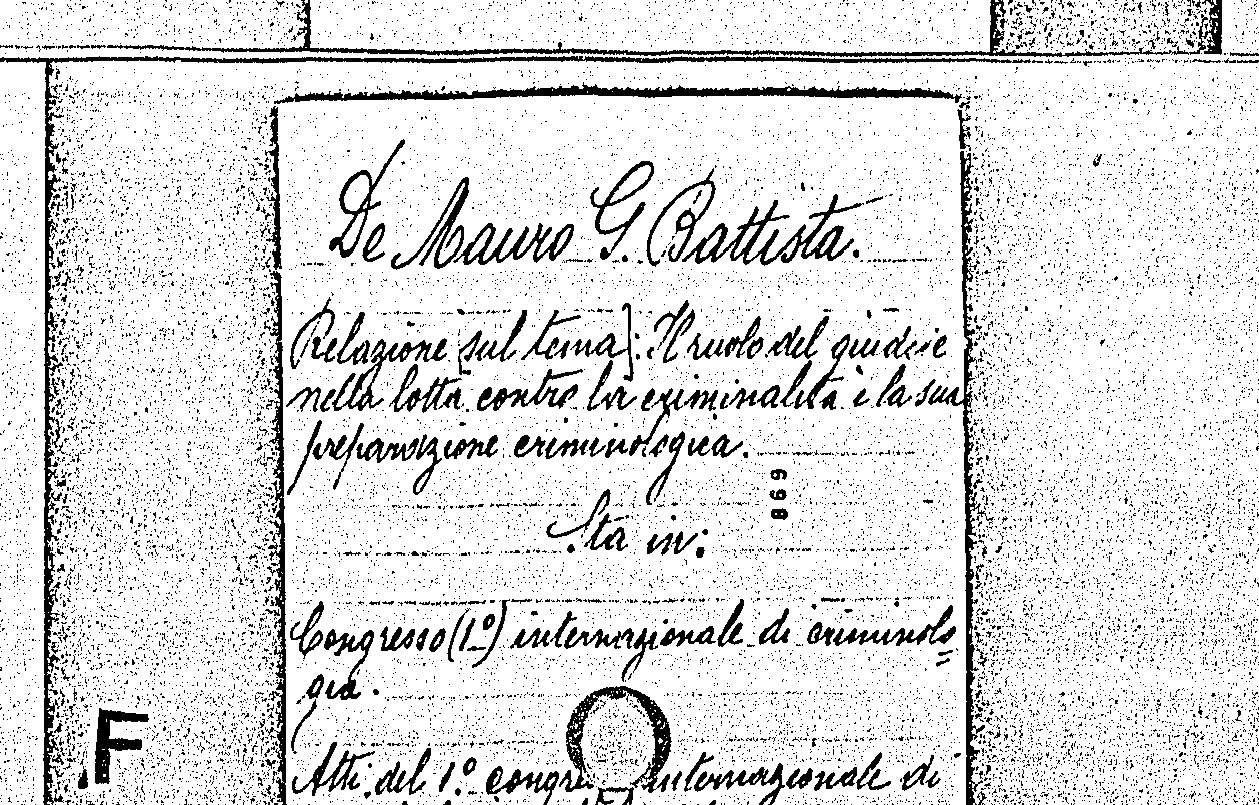 De Mauro G. Battista.
Relazione [sul tema]: Il ruolo del giudice
nella lotta contro la criminalità e la sua
preparazione criminologica.
869
Sta in:
Congresso (1º) internazionale di criminolo
gia.
F
Atti del 1º congresso internazionale di